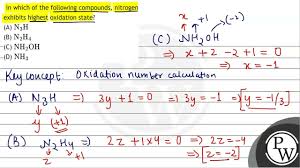 In which of the following compounds, nitrogen
exhibits highest oxidation state?
(A) N₃H
(B) N₂H₄
(C) NH₂OH
(D) NH₃
x +1 (-2)
(C) NH₂OH
⇒ x + 2 - 2 + 1 = 0
⇒ x = -1
Key concept: Oxidation number calculation
(A) N₃H ⇒ 3y + 1 = 0 ⇒ 3y = -1 ⇒ [y = -1/3]
y (+1)
(B) N₂H₄ ⇒ 2z + 1×4 = 0 ⇒ 2z = -4
z +1 ⇒ [z = -2]
P
W